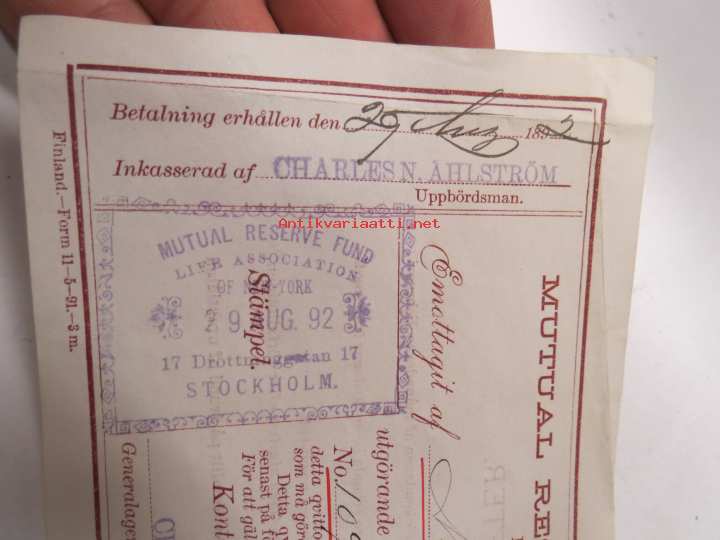 Betalning erhållen den 29 Aug 1892
Inkasserad af CHARLES N. AHLSTRÖM
Uppbördsman.
Antikvariaatti.net
MUTUAL RESERVE FUND
LIFE ASSOCIATION
OF NEW-YORK
29 AUG. 92
17 Drottninggatan 17
STOCKHOLM.
Stämpel.
Finland.—Form 11—5—91.—3 m.
MUTUAL RE
Emottagit af
utgörande
No. 109
detta qvitto
som må gör
Detta q
senast på f
För att gäl
Kont
Generalage